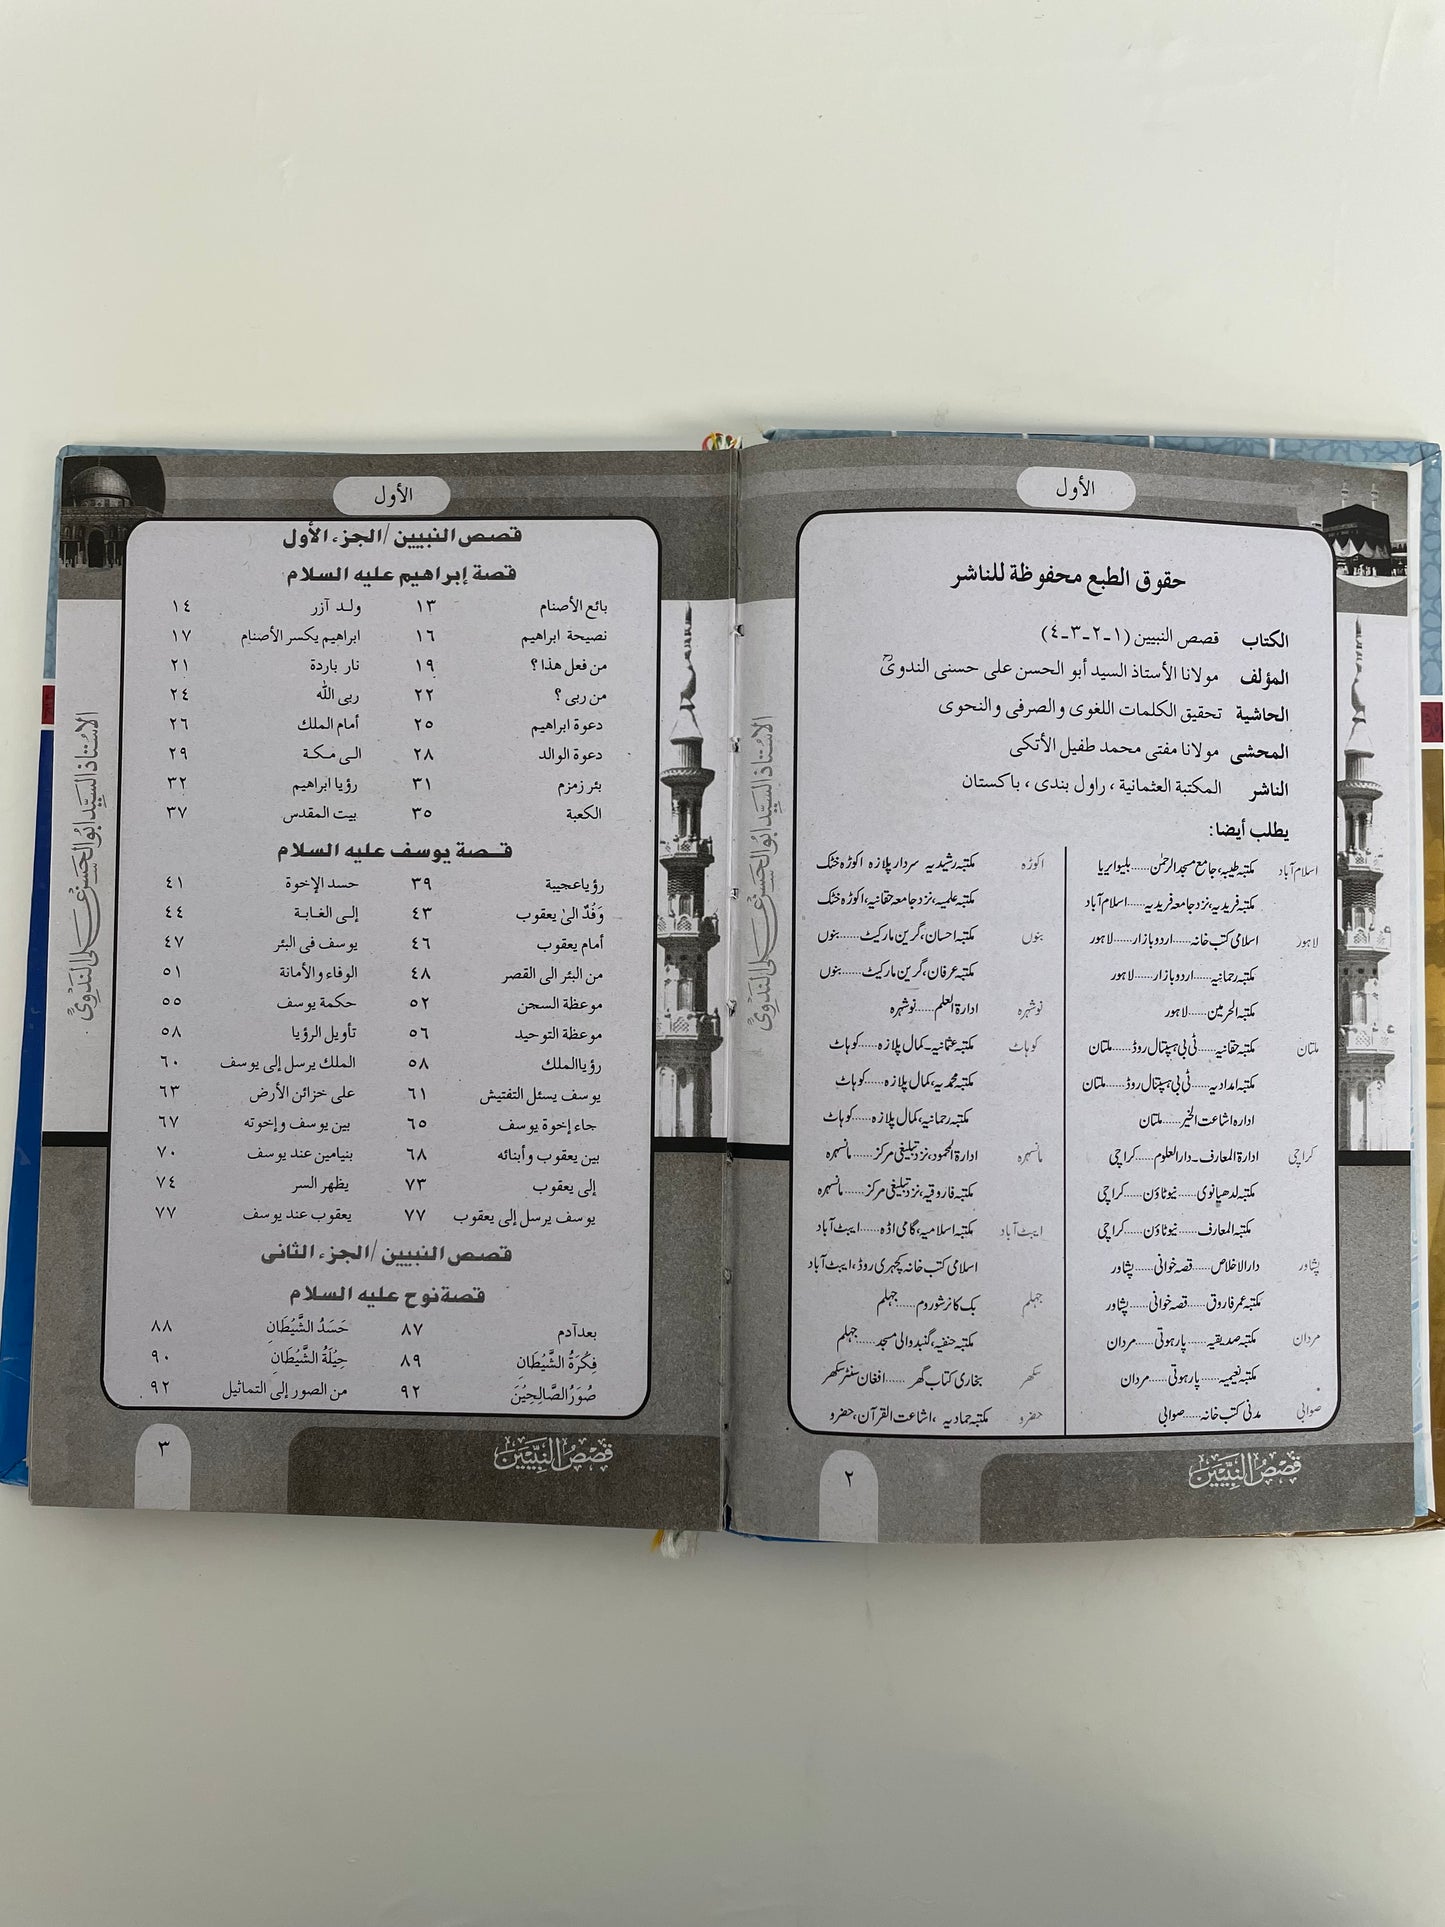 الأول
حقوق الطبع محفوظة للناشر
الكتاب قصص النبيين (١-٢-٣-٤)
المؤلف مولانا الأستاذ السيد أبو الحسن على حسنى الندوىؒ
الحاشية تحقيق الكلمات اللغوى والصرفى والنحوى
المحشى مولانا مفتى محمد طفيل الأتكى
الناشر المكتبة العثمانية ، راول بندى ، باكستان
يطلب أيضا:
اسلام آباد مکتبہ طیبہ، جامع مسجد الرحمٰن......بلیو ایریا
مکتبہ فریدیہ، نزد جامعہ فریدیہ......اسلام آباد
لاہور اسلامی کتب خانہ......اردو بازار......لاہور
مکتبہ رحمانیہ......اردو بازار......لاہور
مکتبہ الحرمین......لاہور
ملتان مکتبہ حقانیہ......ٹی بی ہسپتال روڈ......ملتان
مکتبہ امدادیہ......ٹی بی ہسپتال روڈ......ملتان
ادارہ اشاعت الخیر......ملتان
کراچی ادارۃ المعارف۔دارالعلوم......کراچی
مکتبہ لدھیانوی......نیو ٹاؤن......کراچی
مکتبۃ المعارف......نیو ٹاؤن......کراچی
پشاور دارالاخلاص......قصہ خوانی......پشاور
مکتبہ عمر فاروق......قصہ خوانی......پشاور
مردان مکتبہ صدیقیہ......پار ہوتی......مردان
مکتبہ نعیمیہ......پار ہوتی......مردان
صوابی مدنی کتب خانہ......صوابی
اکوڑہ مکتبہ رشیدیہ سردار پلازہ اکوڑہ خٹک
مکتبہ علمیہ، نزد جامعہ حقانیہ، اکوڑہ خٹک
بنوں مکتبہ احسان، گرین مارکیٹ......بنوں
مکتبہ عرفان، گرین مارکیٹ......بنوں
نوشہرہ ادارۃ العلم......نوشہرہ
کوہاٹ مکتبہ عثمانیہ۔کمال پلازہ......کوہاٹ
مکتبہ محمدیہ، کمال پلازہ......کوہاٹ
مکتبہ رحمانیہ، کمال پلازہ......کوہاٹ
مانسہرہ ادارۃ الحمود، نزد تبلیغی مرکز......مانسہرہ
مکتبہ فاروقیہ، نزد تبلیغی مرکز......مانسہرہ
ایبٹ آباد مکتبہ اسلامیہ، گامی اڈہ......ایبٹ آباد
اسلامی کتب خانہ کچہری روڈ، ایبٹ آباد
جہلم بک کانر شوروم......جہلم
مکتبہ حنفیہ، گنبد والی مسجد......جہلم
سکھر بخاری کتاب گھر......افغان سنٹر سکھر
حضرو مکتبہ حمادیہ، اشاعت القرآن، حضرو
الاستاذ السيد ابو الحسن على الندوىؒ
قصص النبيين
٢
الأول
قصص النبيين/الجزء الأول
قصة إبراهيم عليه السلام
بائع الأصنام ١٣ ولد آزر ١٤
نصيحة ابراهيم ١٦ ابراهيم يكسر الأصنام ١٧
من فعل هذا؟ ١٩ نار باردة ٢١
من ربى؟ ٢٢ ربى الله ٢٤
دعوة ابراهيم ٢٥ أمام الملك ٢٦
دعوة الوالد ٢٨ الى مكة ٢٩
بئر زمزم ٣١ رؤيا ابراهيم ٣٢
الكعبة ٣٥ بيت المقدس ٣٧
قصة يوسف عليه السلام
رؤيا عجيبة ٣٩ حسد الإخوة ٤١
وَفْدٌ الىٰ يعقوب ٤٣ إلى الغابة ٤٤
أمام يعقوب ٤٦ يوسف فى البئر ٤٧
من البئر الى القصر ٤٨ الوفاء والأمانة ٥١
موعظة السجن ٥٢ حكمة يوسف ٥٥
موعظة التوحيد ٥٦ تأويل الرؤيا ٥٨
رؤيا الملك ٥٨ الملك يرسل إلى يوسف ٦٠
يوسف يسئل التفتيش ٦١ على خزائن الأرض ٦٣
جاء إخوة يوسف ٦٥ بين يوسف وإخوته ٦٧
بين يعقوب وأبنائه ٦٨ بنيامين عند يوسف ٧٠
إلى يعقوب ٧٣ يظهر السر ٧٤
يوسف يرسل إلى يعقوب ٧٧ يعقوب عند يوسف ٧٧
قصص النبيين/الجزء الثانى
قصة نوح عليه السلام
بعد آدم ٨٧ حَسَدُ الشَّيْطَانِ ٨٨
فِكْرَةُ الشَّيْطَانِ ٨٩ حِيْلَةُ الشَّيْطَانِ ٩٠
صُوَرُ الصَّالِحِيْنَ ٩٢ من الصور إلى التماثيل ٩٢
الاستاذ السيد ابو الحسن على الندوىؒ
قصص النبيين
٣